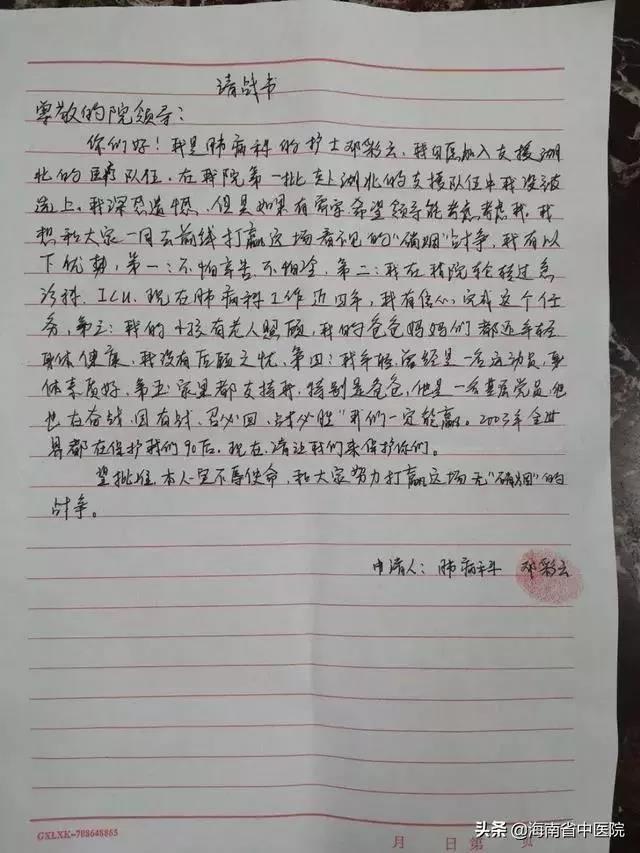 请战书
尊敬的院领导：
你们好！我是肺病科的护士邓彩云，我自愿加入支援湖
北的医疗队伍。在我院第一批赴湖北的支援队伍中我没被
选上，我深感遗憾，但是如果有需要希望领导能考虑考虑我，我
想和大家一同去前线打赢这场看不见的“硝烟”战争，我有以
下优势，第一：不怕辛苦，不怕冷，第二：我在我院轮转过急
诊科，ICU，现在肺病科工作近四年，我有信心完成这个任
务，第三：我的小孩有老人照顾，我的爸爸妈妈们都还年轻
身体健康，我没有后顾之忧，第四：我年轻，曾经是一名运动员，身
体素质好，第五：家里都支持我，特别是爸爸，他是一名基层党员，他
也在奋战，因“有战，召必回，战必胜”我们一定能赢。2003年全世
界都在保护我们90后，现在，请让我们来保护你们。
望批准，本人一定不辱使命，和大家努力打赢这场无“硝烟”的
战争。
申请人：肺病科 邓彩云
GXLXK-788648865
月 日第 页
头条 @海南省中医院